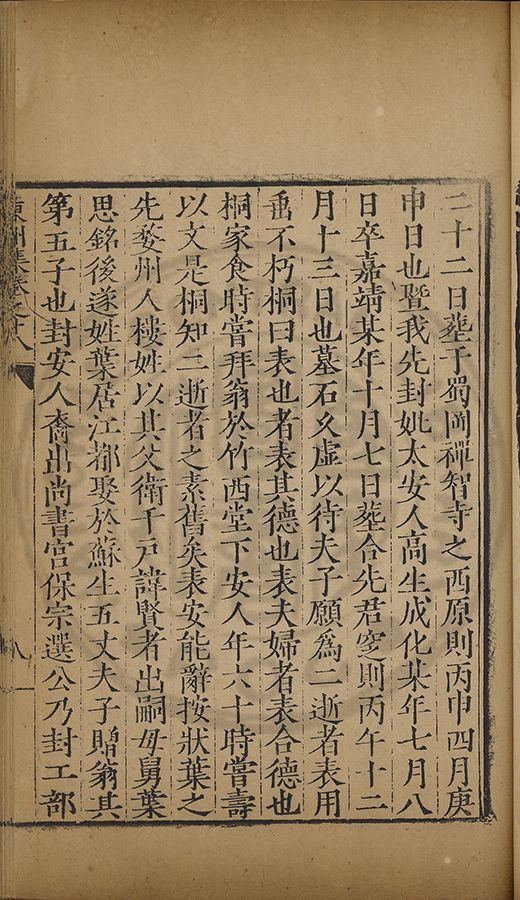 二十二日葬于蜀岡禪智寺之西原則丙申四月庚
申日也暨我先封妣太安人高生成化某年七月八
日卒嘉靖某年十月七日葬合先君窆則丙午十二
月十三日也墓石久虛以待夫子願爲二逝者表用
垂不朽桐曰表也者表其德也表夫婦者表合德也
桐家食時嘗拜翁於竹西堂下安人年六十時嘗壽
以文是桐知二逝者之素舊矣表安能辭按狀葉之
先婺州人樓姓以其父衛千戶諱賢者出嗣母舅葉
思銘後遂姓葉居江都娶於蘇生五丈夫子贈翁其
第五子也封安人裔出尚書宫保宗選公乃封工部
東州集卷之十八
八